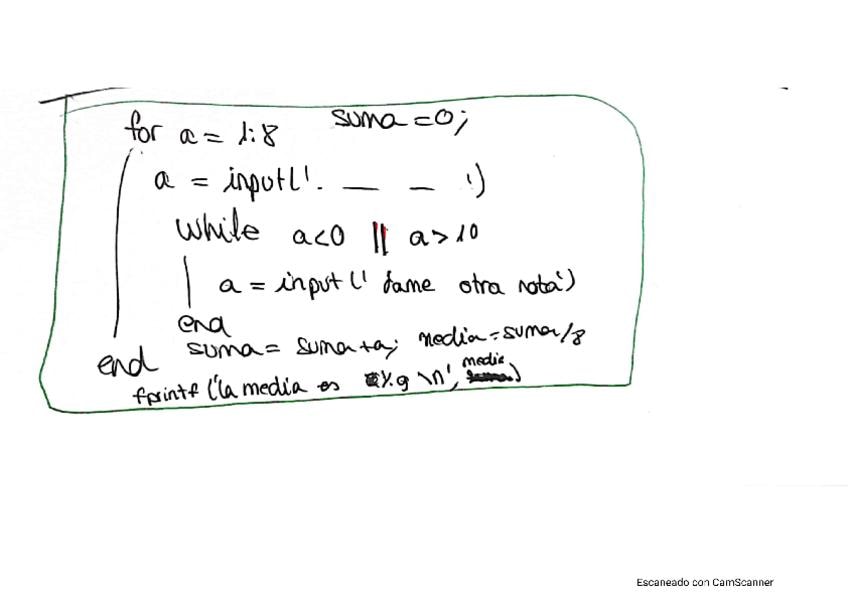 for a = 1:8 suma = 0;
a = input('. _ _ ')
while a<0 || a>10
a = input(' dame otra nota')
end
suma = suma+a; media = suma/8
end
fprintf ('la media es %g \n', media)